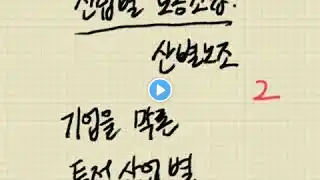 산업별 노동조합.
산별노조
2
기업을 막론
특정 산업별